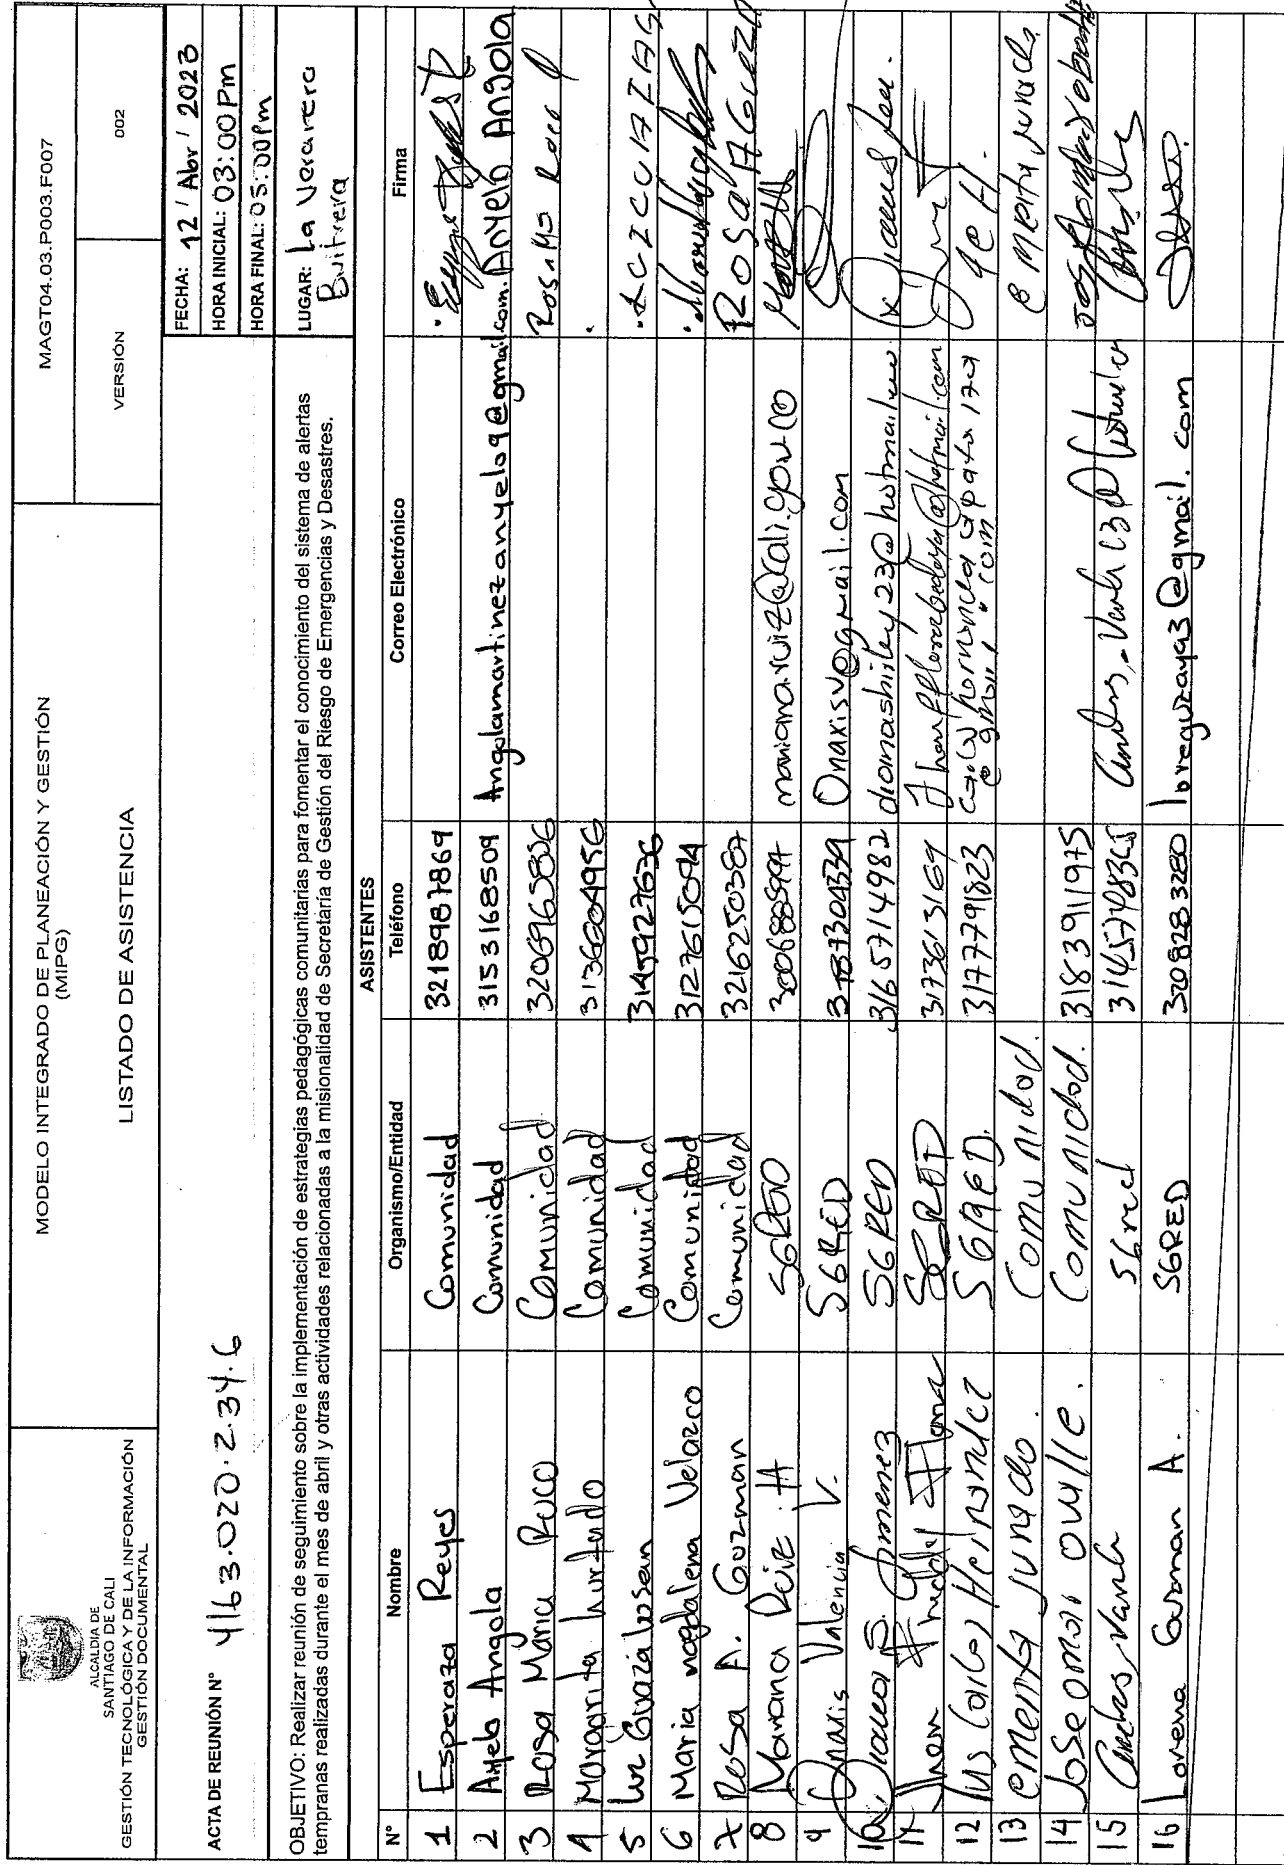 ALCALDIA DE
SANTIAGO DE CALI
GESTIÓN TECNOLÓGICA Y DE LA INFORMACIÓN
GESTIÓN DOCUMENTAL
MODELO INTEGRADO DE PLANEACIÓN Y GESTIÓN
(MIPG)
LISTADO DE ASISTENCIA
MAGT04.03.P003.F007
VERSIÓN 002
ACTA DE REUNIÓN N° 4163.020.2.34.6
FECHA: 12 / Abr / 2023
HORA INICIAL: 03:00 Pm
HORA FINAL: 05:00 Pm
OBJETIVO: Realizar reunión de seguimiento sobre la implementación de estrategias pedagógicas comunitarias para fomentar el conocimiento del sistema de alertas
tempranas realizadas durante el mes de abril y otras actividades relacionadas a la misionalidad de Secretaría de Gestión del Riesgo de Emergencias y Desastres.
LUGAR: La Veravera
Buitrera
ASISTENTES
N° Nombre Organismo/Entidad Teléfono Correo Electrónico Firma
1 Esperaza Reyes Comunidad 3218987869
2 Anyelo Angola Comunidad 3153168509 Angolamartinezanyelo9@gmail.com. Anyelo Angola
3 Rosa Maria Roco Comunidad 3206965806
4 Margarita hurtado Comunidad 3136604956
5 Luz Comunidad 3145927636
6 Maria magdalena Velazco Comunidad 3127615094
7 Rosa A. Guzman Comunidad 3216250387
8 Mariana Ruiz H SGRED mariana.ruiz@cali.gov.co
9 Onaris Valencia V. SGRED 3187304339 Onarisv@gmail.com
10 Diana S. Jimenez SGRED 3165714982 dianashirley23@hotmail
11 Jhon SGRED 3173613169
12 Luis Carlos Hernandez SGRED. 3177791823
13 emerita jurado. Comunidad.
14 Jose omar ovalle. Comunidad. 3183911975
15 Andres Varela SGred
16 Lorena Guzman A. SGRED 3208283280 loreguzaya3@gmail.com